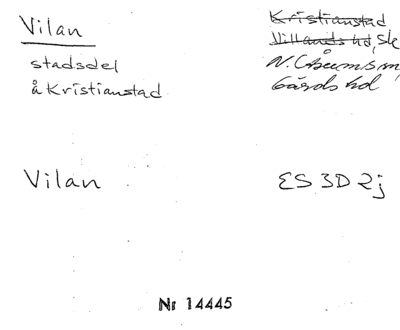 Vilan
stadsdel
å Kristianstad
Kristianstad
Villands hd, Sk
N. Åsums sn,
Gärds hd
Vilan
ES 3D 2j
Nr 14445